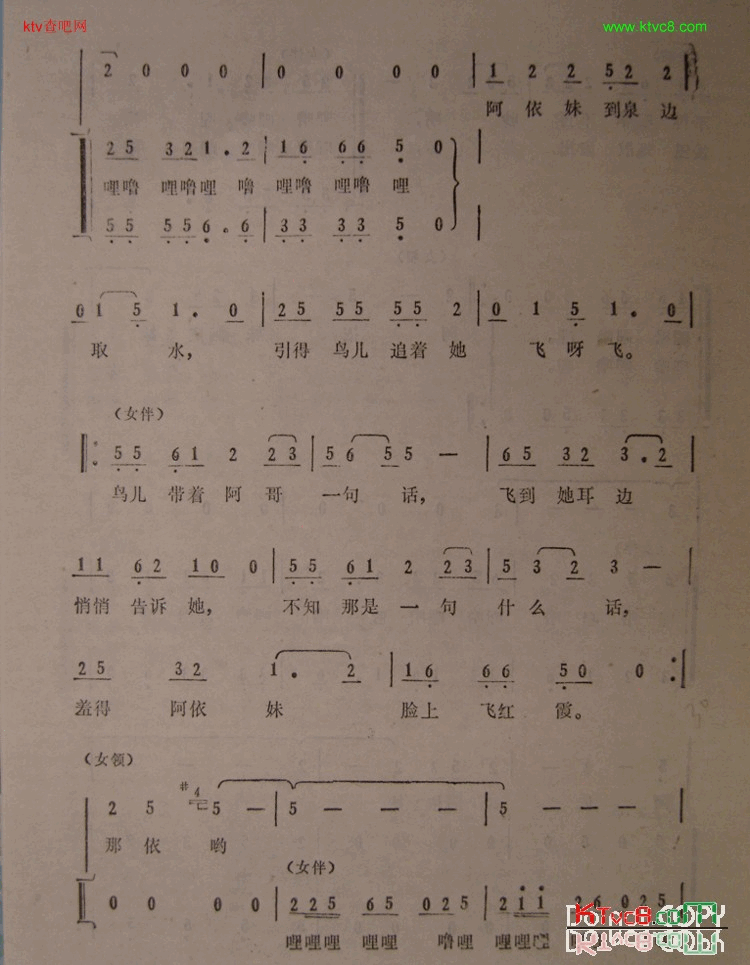 ktv查吧网
www.ktvc8.com
2 0 0 0 | 0 0 0 0 | 1 2 2 5 2 2
阿依妹到泉边
2 5 3 2 1 . 2 | 1 6 6 6 5 0
哩噜 哩噜哩 噜 哩噜 哩噜 哩
5 5 5 5 6 . 6 | 3 3 3 3 5 0
0 1 5 1 . 0 | 2 5 5 5 5 5 2 | 0 1 5 1 . 0
取 水， 引得 鸟儿 追着 她 飞 呀 飞。
（女伴）
5 5 6 1 2 2 3 | 5 6 5 5 — | 6 5 3 2 3 . 2
鸟儿 带着 阿 哥 一 句 话， 飞到 她耳 边
1 1 6 2 1 0 0 | 5 5 6 1 2 2 3 | 5 3 2 3 —
悄悄 告诉 她， 不知 那是 一 句 什 么 话，
2 5 3 2 1 . 2 | 1 6 6 6 5 0 0 :|
羞得 阿依 妹 脸上 飞红 霞。
（女领）
2 5 #4 5 — | 5 — — — | 5 — — —
那 依 哟
（女伴）
0 0 0 0 | 2 2 5 6 5 0 2 5 | 2 1 1 2 6 0 2 5
哩哩哩 哩哩 噜哩 哩哩哩
KTvc8.com
DO NOT COPY